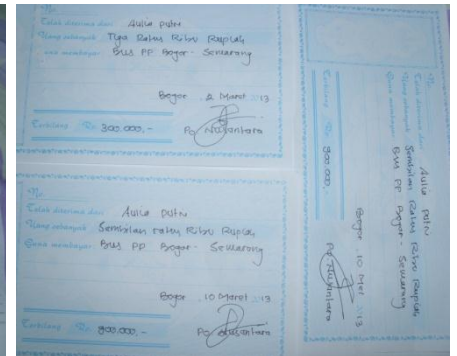 No.
Telah diterima dari Aulia Putri
Uang sebanyak Tiga Ratus Ribu Rupiah
Guna membayar Bus PP Bogor - Semarang
Bogor, 2 Maret 2013
Terbilang Rp. 300.000,-
Po Nusantara
No.
Telah diterima dari Aulia Putri
Uang sebanyak Sembilan ratus Ribu Rupiah
Guna membayar Bus PP Bogor - Semarang
Bogor, 10 Maret 2013
Terbilang Rp. 900.000,-
Po Nusantara
No.
Telah diterima dari Aulia Putri
Uang sebanyak Sembilan Ratus Ribu Rupiah
Guna membayar Bus PP Bogor - Semarang
Bogor, 10 Mei 2013
Terbilang Rp. 900.000,-
Po Nusantara